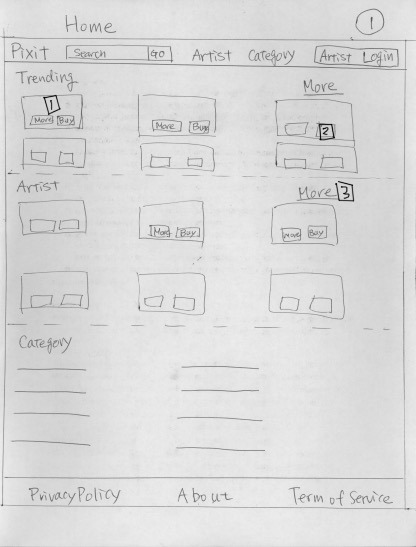 Home
1
Pixit Search GO Artist Category Artist Login
Trending More
1
More Buy More Buy
2
Artist More 3
More Buy More Buy
Category
Privacy Policy About Term of Service